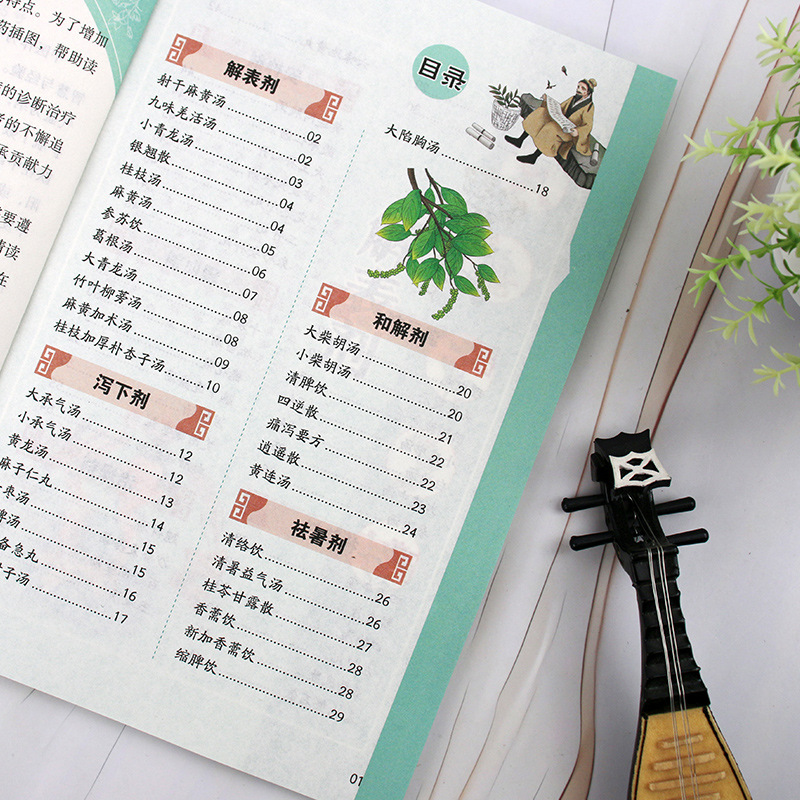 特点。为了增加
药插图，帮助读
的诊断治疗
的不懈追
承贡献力
要遵
请读
在
目录
解表剂
射干麻黄汤……02
九味羌活汤……02
小青龙汤……03
银翘散……04
桂枝汤……04
麻黄汤……05
参苏饮……06
葛根汤……07
大青龙汤……08
竹叶柳蒡汤……08
麻黄加术汤……09
桂枝加厚朴杏子汤……10
泻下剂
大承气汤……12
小承气汤……12
黄龙汤……13
麻子仁丸……14
枣汤……15
脾汤……15
备急丸……16
子汤……17
大陷胸汤……18
和解剂
大柴胡汤……20
小柴胡汤……20
清脾饮……21
四逆散……22
痛泻要方……22
逍遥散……23
黄连汤……24
祛暑剂
清络饮……26
清暑益气汤……26
桂苓甘露散……27
香薷饮……28
新加香薷饮……28
缩脾饮……29
01